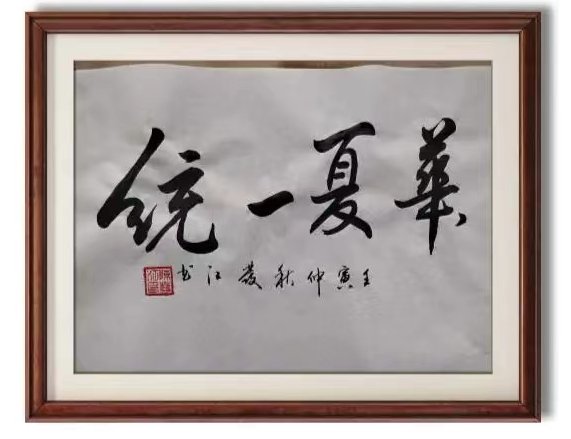 華夏一统
壬寅仲秋 发江书